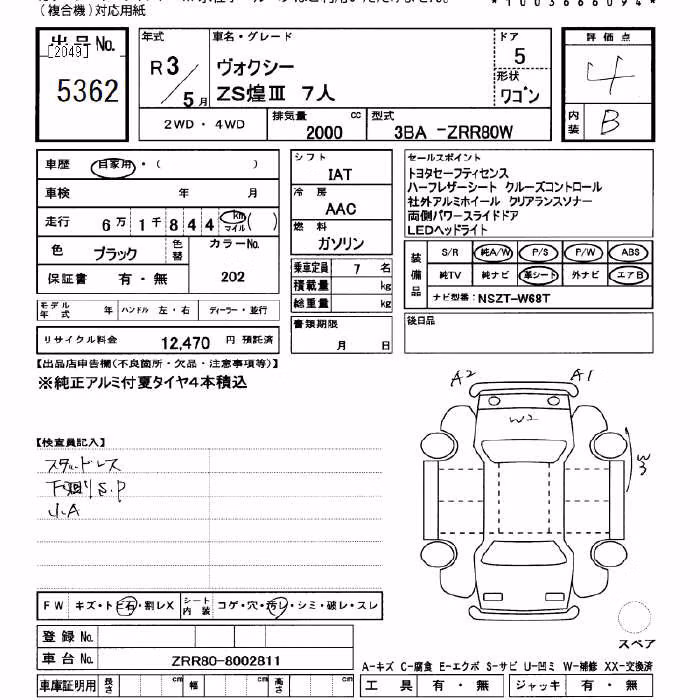 (複合機)対応用紙
*1003666094*
出品No.
[2049]
5362
年式
R3/5月
車名・グレード
ヴォクシー
ZS煌Ⅲ 7人
ドア
5
形状
ワゴン
2WD・4WD
排気量 cc
2000
型式
3BA -ZRR80W
評価点
4
内装
B
車歴 自家用・( )
車検 年 月
走行 6万1千844 km マイル ( )
色 ブラック
色替
カラーNo.
202
保証書 有・無
モデル年式 年 ハンドル 左・右 ディーラー・並行
リサイクル料金 12,470 円 預託済
シフト
IAT
冷房
AAC
燃料
ガソリン
乗車定員 7 名
積載量 kg
総重量 kg
書類期限
月 日
セールスポイント
トヨタセーフティセンス
ハーフレザーシート クルーズコントロール
社外アルミホイール クリアランスソナー
両側パワースライドドア
LEDヘッドライト
装備品
S/R 純A/W P/S P/W ABS
純TV 純ナビ 革シート 外ナビ エアB
ナビ型番: NSZT-W68T
後日品
【出品店申告欄(不良箇所・欠品・注意事項等)】
※純正アルミ付夏タイヤ4本積込
【検査員記入】
スタッドレス
下回りS.P
小A
A2
A1
W2
W3
FW キズ・トビ石・割レX シート内装 コゲ・穴・汚レ・シミ・破レ・スレ
登録No.
車台No. ZRR80-8002811
車庫証明用 長さ cm 幅 cm 高さ cm
スペア
A-キズ C-腐食 E-エクボ S-サビ U-凹ミ W-補修 XX-交換済
工具 有・無 ジャッキ 有・無